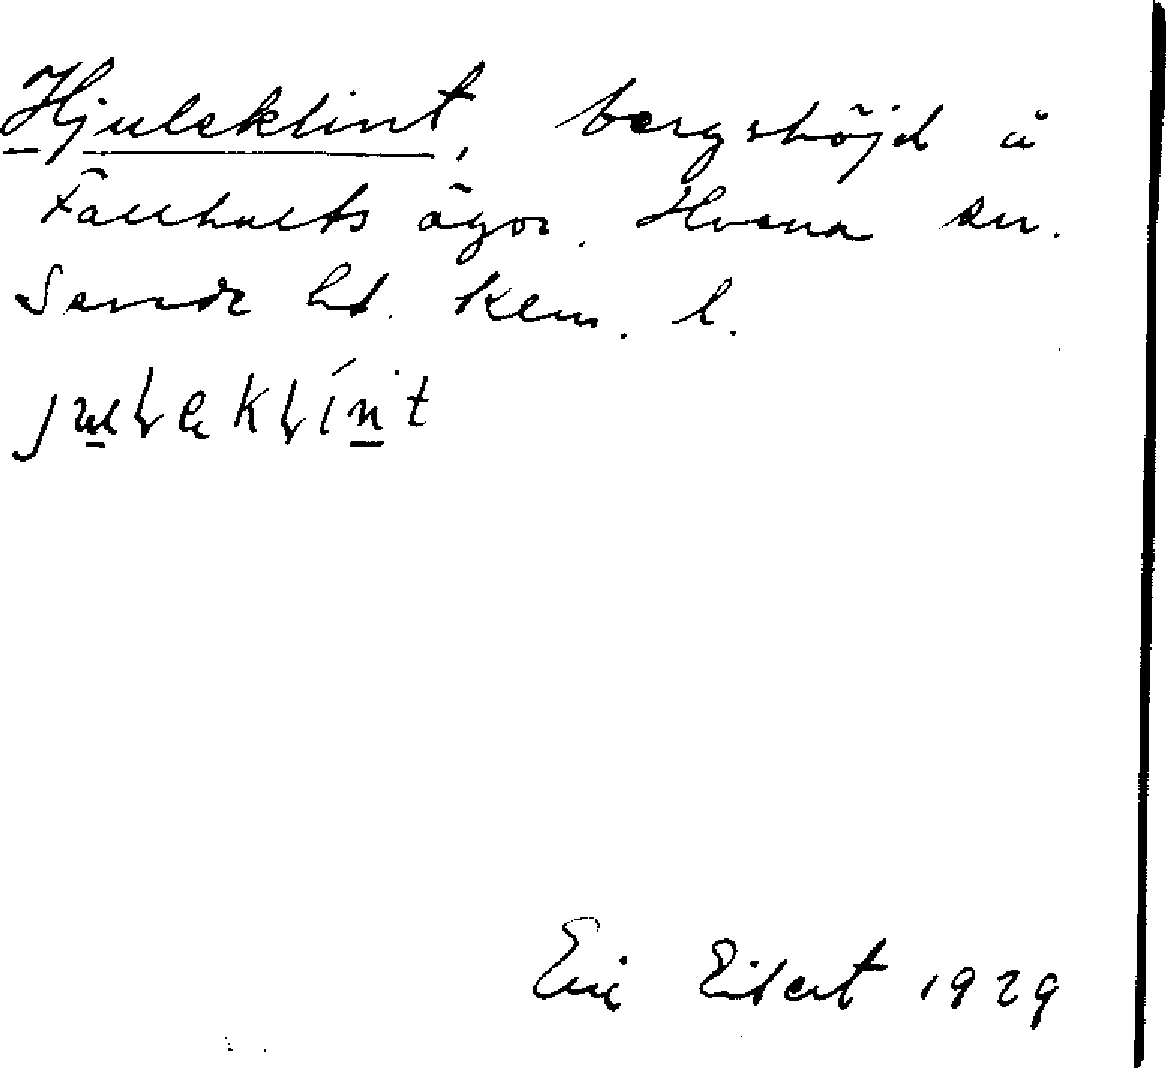 Hjuleklint, bergshöjd å
Fallhults ägor. Hvena sn.
Sevede hd. KLm. l.
Eric Eilert 1929